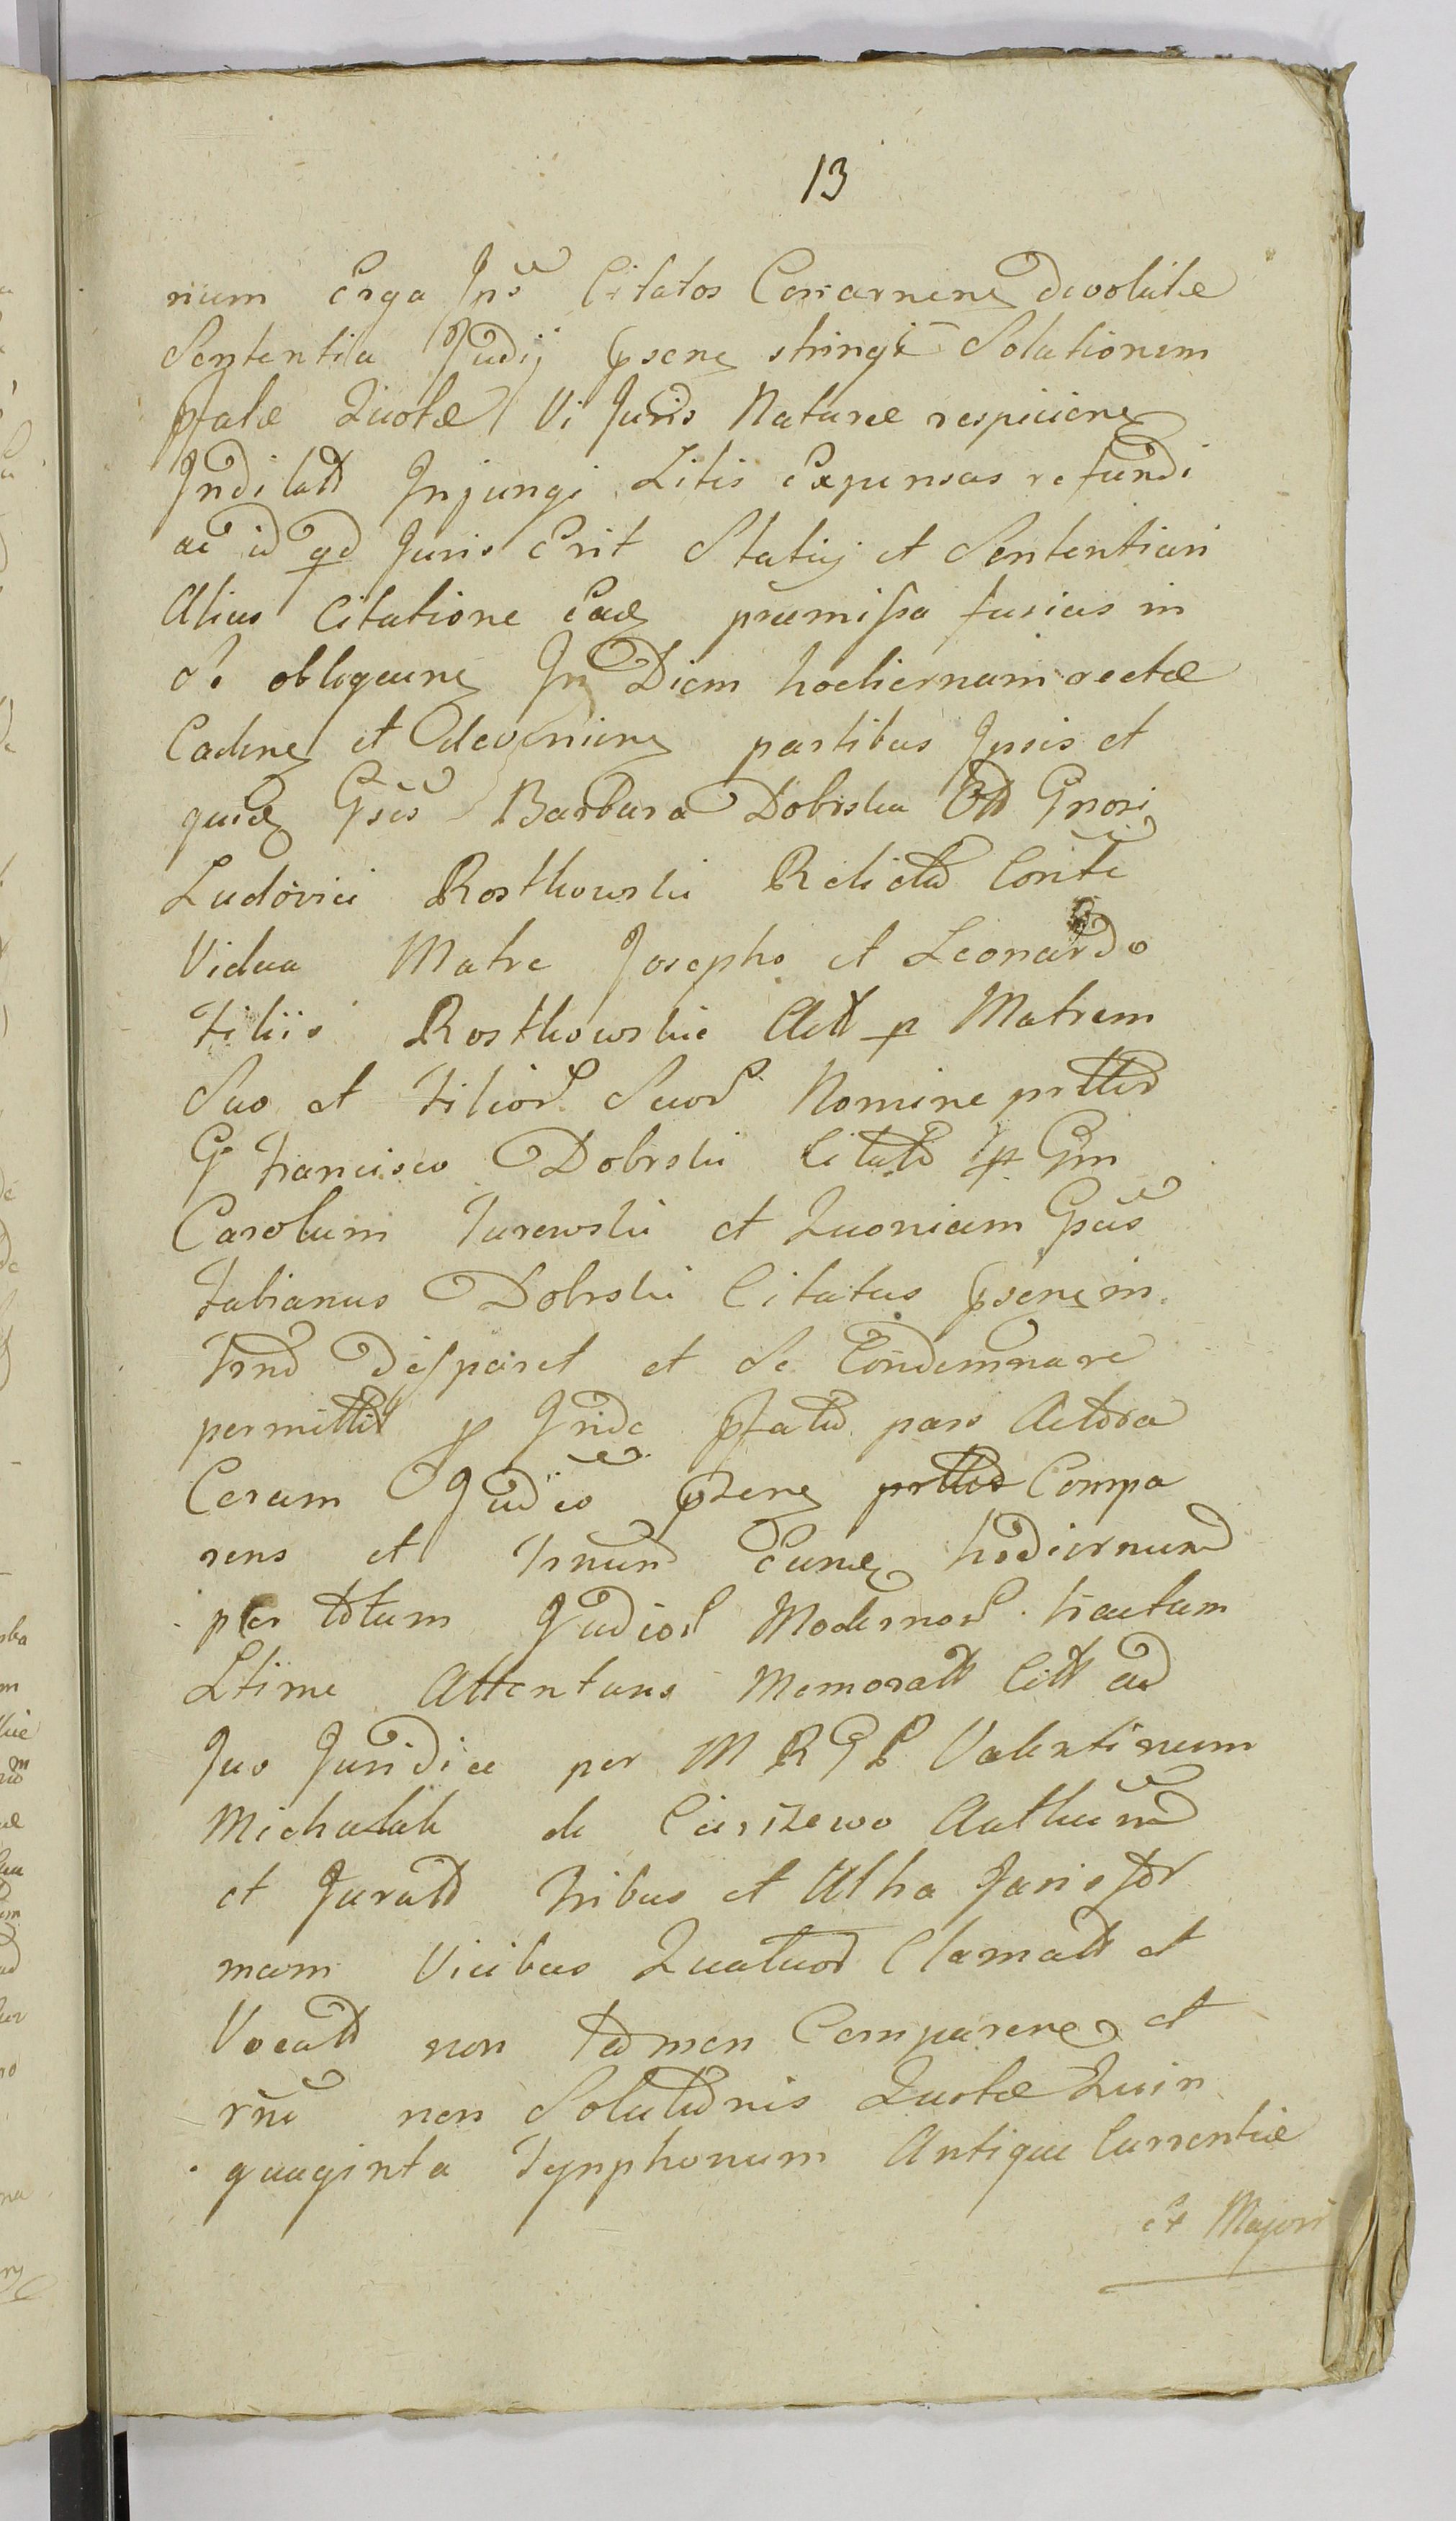 13
num Erga Ips Citatos Concernene devolutæ
Sententia Judij psene stringi Solutionem
pfatæ Quotæ Vi Juris Naturæ respiciene
Indilatt Injungi Litis Expensas refundi
ac id qd Juris Erit Statui et Sententiari
Alias Citatione Eadem præmissa fusius in
Se obloquene In Diem hodiernam recte
Cadene et deveniene partibus Ipsis et
quidem Gsis Barbara Dobrska Olt Gnosi
Ludovici Rostkowski Relicta Conte
Vidua Matre Josepho et Leonardo
Filiis Rostkowskie Actt p Matrem
Suo et Filior Suor Nomine prtted
G Francisco Dobrski Citato p Gm
Carolum Turowski et Quoniam Gsus
Fabianus Dobrski Citatus psene in
Trno disparet et Se Condemnare
permittit p Inde pfata pars Actorea
Coram Judicio pzene prtted Compa
rens et Trnum Eume hodiernum
per totum Judicior Modernor tractum
Ltime Attentans Memoratt Citt ad
Jus Juridice per M R G P Valentinum
Michalak de Ciarszewo Authum
et Juratt tribus et Ultra Juris for
mam Vicibus Quatuor Clamatt et
Vocatt non tamen Comparene et
rne non Solutionis Quotæ Quin
quaginta Tynphonum Antiquæ Currentiæ
et Majori